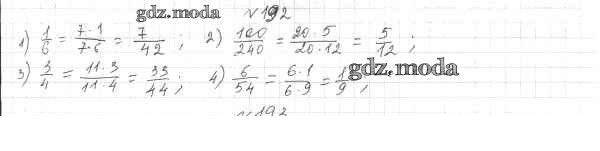 gdz.moda №192
1) 1/6 = 7·1/7·6 = 7/42 ; 2) 100/240 = 20·5/20·12 = 5/12 ;
3) 3/4 = 11·3/11·4 = 33/44 ; 4) 6/54 = 6·1/6·9 = 1/9 ; gdz.moda
№192